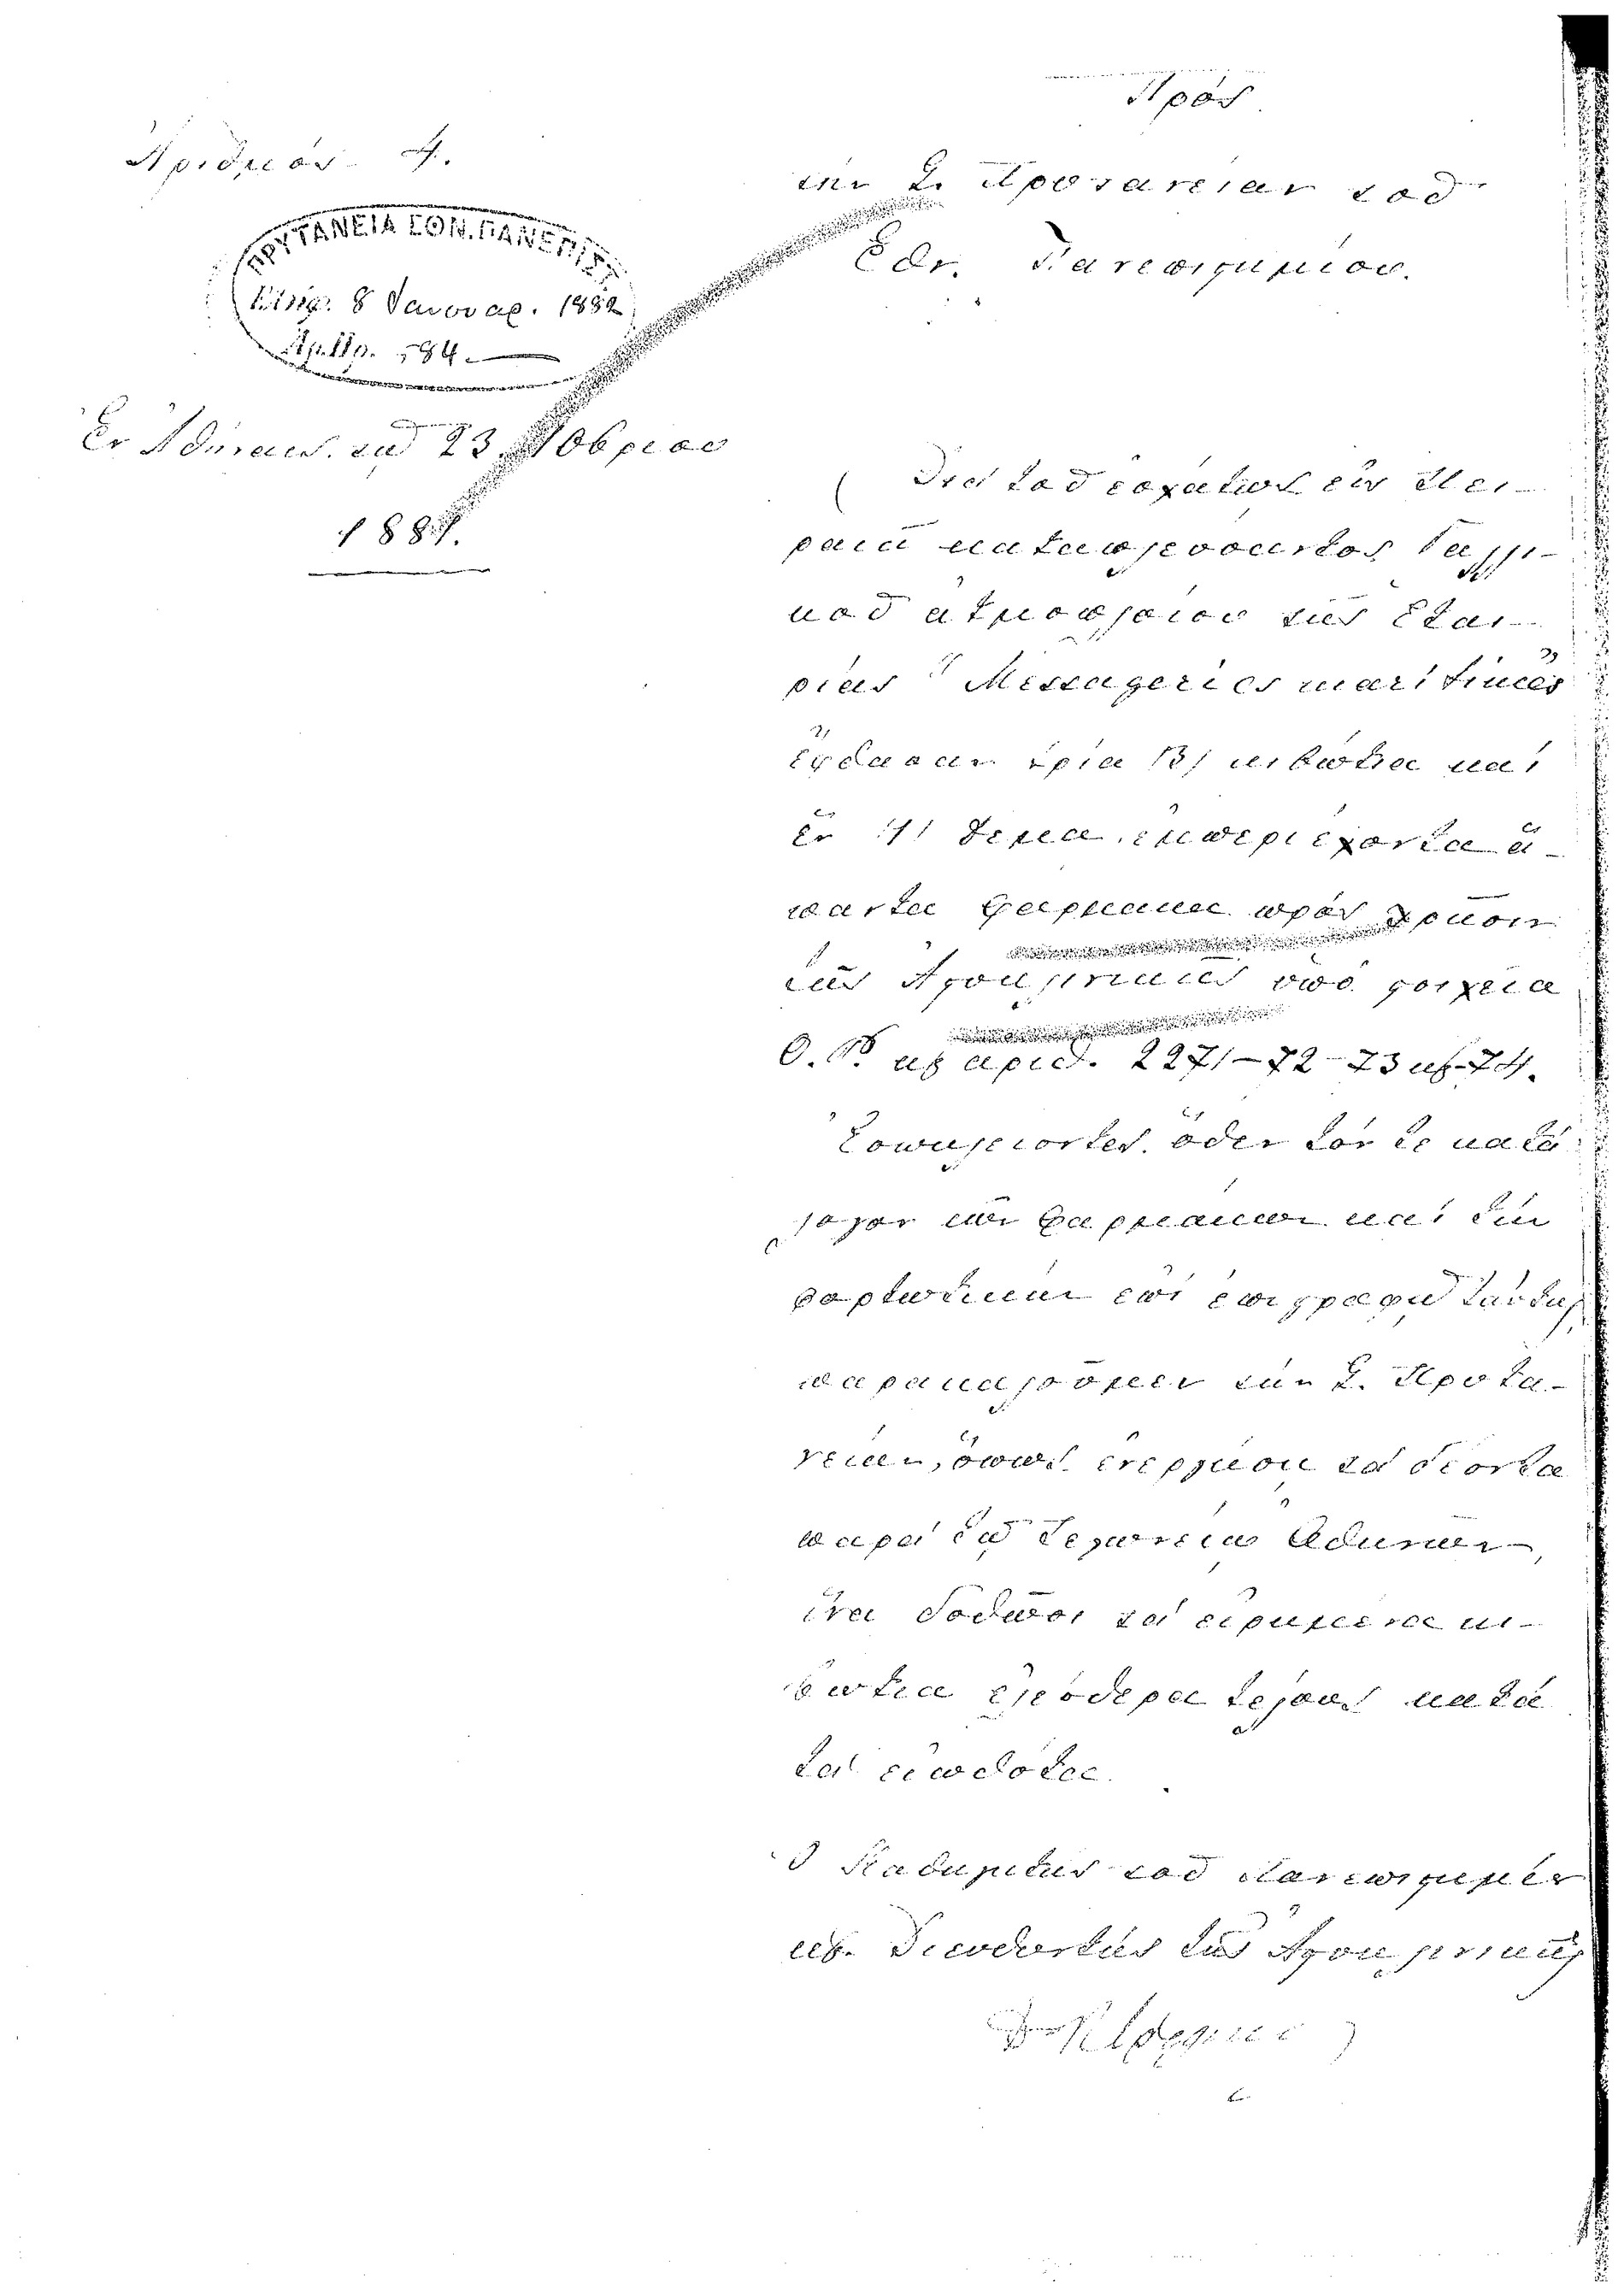 Ἀριθμὸς 4.
ΠΡΥΤΑΝΕΙΑ ΤΟΥ ΠΑΝΕΠΙΣΤ
8 Ἰανουαρ. 1882
Ἀρ. Πρ. 594.
Ἐν Ἀθήναις τῇ 23 Νοβρίου
1881.
Πρὸς
τὴν Σ. Πρυτανείαν τοῦ
Ἐθν. Πανεπιστημίου.
Διὰ τοῦ ἐσχάτως εἰς Πει-
ραιᾶ καταπλεύσαντος Γαλλι-
κοῦ ἀτμοπλοίου τῆς Ἑται-
ρίας "Messageries maritimes"
ἔφθασαν τρία (3) κιβώτια καὶ
ἓν (1) δέμα, ἐμπεριέχοντα ἅ-
παντα φάρμακα πρὸς χρῆσιν
τῆς Ἀστυκλινικῆς ὑπὸ στοιχεῖα
O. P. κ ἀριθ. 2271-72-73 κ 74.
Ἐσωκλείοντες ὅθεν τόν τε κατά-
λογον τῶν φαρμάκων καὶ τὴν
φορτωτικὴν ἐπὶ ἐπιστροφῇ ταύτης
παρακαλοῦμεν τὴν Σ. Πρυτα-
νείαν, ὅπως ἐνεργήσῃ τὰ δέοντα
παρὰ τῷ Τελωνείῳ Ἀθηνῶν,
ἵνα δοθῶσι τὰ εἰρημένα κι-
βώτια ἐλεύθερα τέλους κατὰ
τὰ εἰωθότα.
Ὁ Καθηγητὴς τοῦ Πανεπιστημίου
κ Διευθυντὴς τῆς Ἀστυκλινικῆς